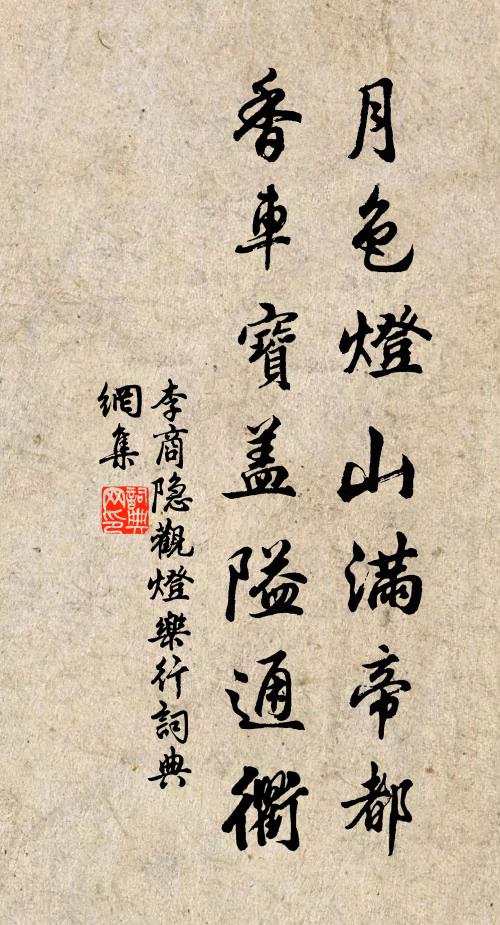 月色燈山滿帝都
香車寶盖隘通衢
李商隐觀燈樂行詞典
網集
詞典
网印